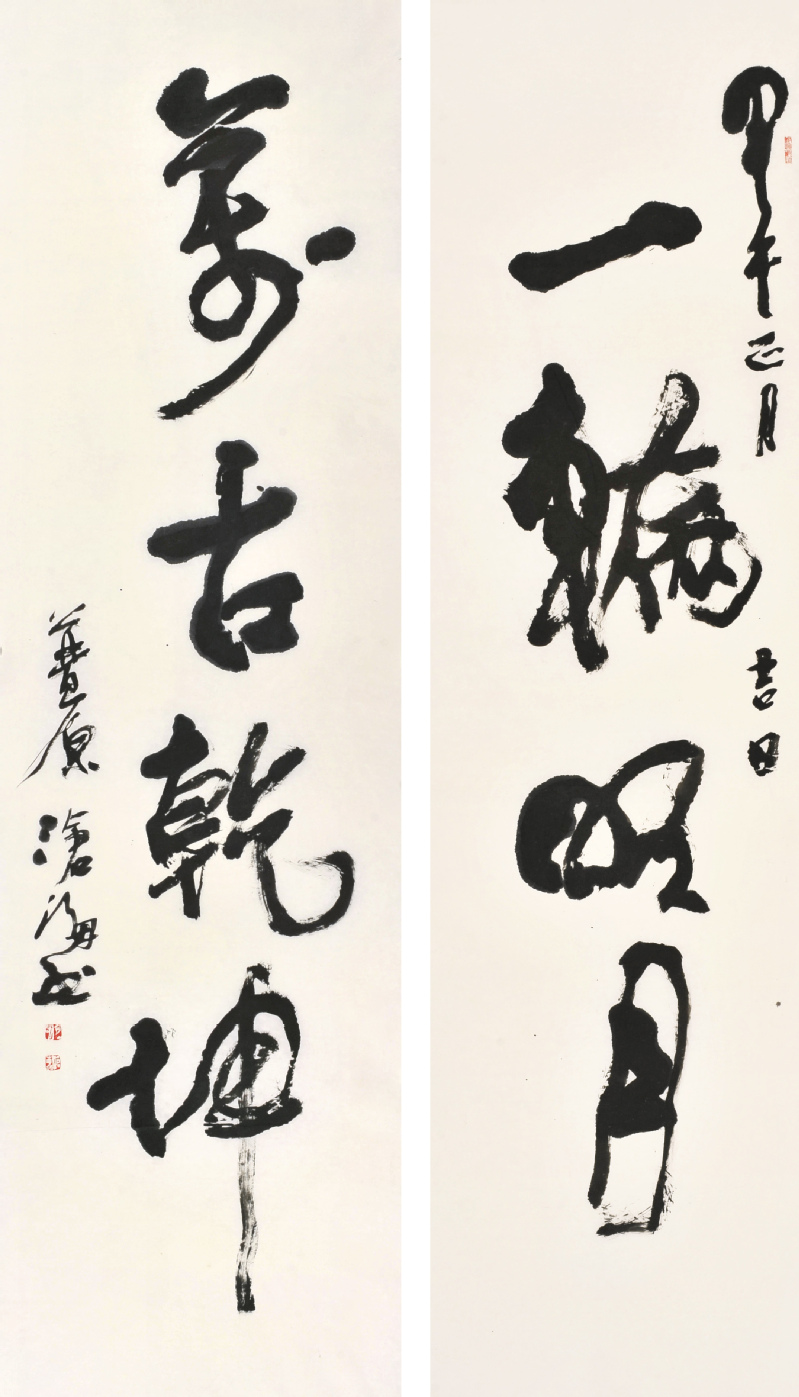 甲午正月
吉日
一輪明月
萬古乾坤
原滄海書